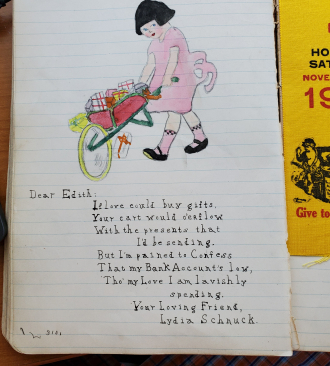 Dear Edith:
If love could buy gifts,
Your cart would o'erflow
With the presents that
I'd be sending.
But I'm pained to Confess
That my Bank Account's low,
Tho' my Love I am lavishly
spending.
Your Loving Friend,
Lydia Schnuck.
HO
SAT
NOVE
19
Give to